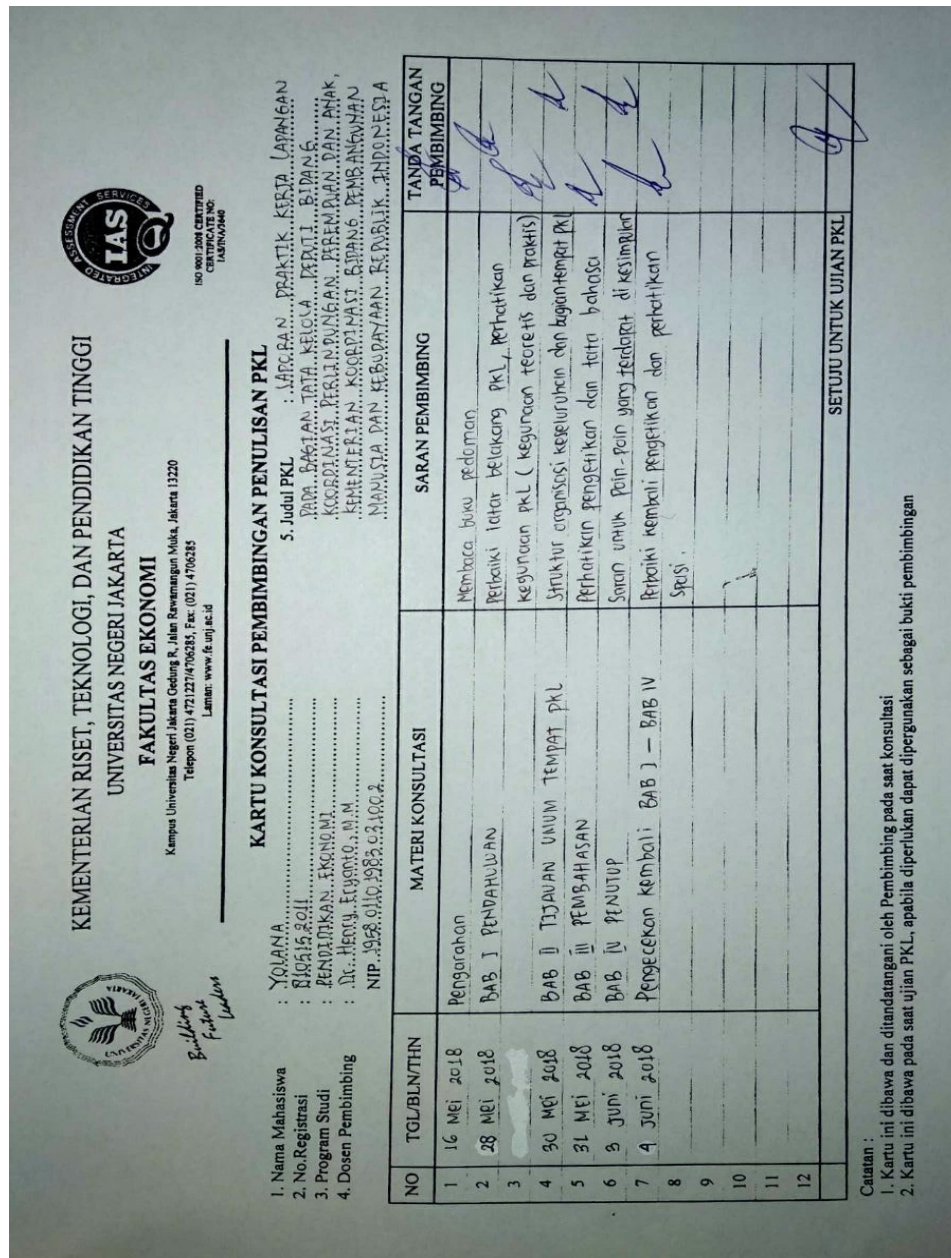 KEMENTERIAN RISET, TEKNOLOGI, DAN PENDIDIKAN TINGGI
UNIVERSITAS NEGERI JAKARTA
FAKULTAS EKONOMI
Kampus Universitas Negeri Jakarta Gedung R, Jalan Rawamangun Muka, Jakarta 13220
Telepon (021) 4721227/4706285, Fax: (021) 4706285
Laman: www.fe.unj.ac.id
UNIVERSITAS NEGERI JAKARTA
Building
Future
Leaders
INTEGRATED ASSESSMENT SERVICES
IAS
ISO 9001:2008 CERTIFIED
CERTIFICATE NO:
IAS/INA/3640
KARTU KONSULTASI PEMBIMBINGAN PENULISAN PKL
1. Nama Mahasiswa : YOLANA
2. No.Registrasi : 8105152011
3. Program Studi : PENDIDIKAN EKONOMI
4. Dosen Pembimbing : Dr. Henry Eryanto, M.M
NIP. 1958 0110 1983 03 1002
5. Judul PKL : LAPORAN PRAKTIK KERJA LAPANGAN
PADA BAGIAN TATA KELOLA DEPUTI BIDANG
KOORDINASI PERLINDUNGAN PEREMPUAN DAN ANAK,
KEMENTERIAN KOORDINASI BIDANG PEMBANGUNAN
MANUSIA DAN KEBUDAYAAN REPUBLIK INDONESIA
NO TGL/BLN/THN MATERI KONSULTASI SARAN PEMBIMBING TANDA TANGAN PEMBIMBING
1 16 Mei 2018 Pengarahan Membaca buku pedoman
2 28 Mei 2018 BAB I PENDAHULUAN Perbaiki latar belakang PKL, perhatikan
3 kegunaan PKL ( kegunaan teoretis dan praktis)
4 30 Mei 2018 BAB II TIJAUAN UMUM TEMPAT PKL Struktur organisasi keseluruhan dan bagian tempat PKL
5 31 Mei 2018 BAB III PEMBAHASAN Perhatikan pengetikan dan tata bahasa
6 3 Juni 2018 BAB IV PENUTUP Saran untuk Poin-Poin yang terdapat di kesimpulan
7 4 Juni 2018 Pengecekan Kembali BAB I - BAB IV Perbaiki kembali pengetikan dan perhatikan
8 Spasi.
9
10
11
12
SETUJU UNTUK UJIAN PKL
Catatan :
1. Kartu ini dibawa dan ditandatangani oleh Pembimbing pada saat konsultasi
2. Kartu ini dibawa pada saat ujian PKL, apabila diperlukan dapat dipergunakan sebagai bukti pembimbingan